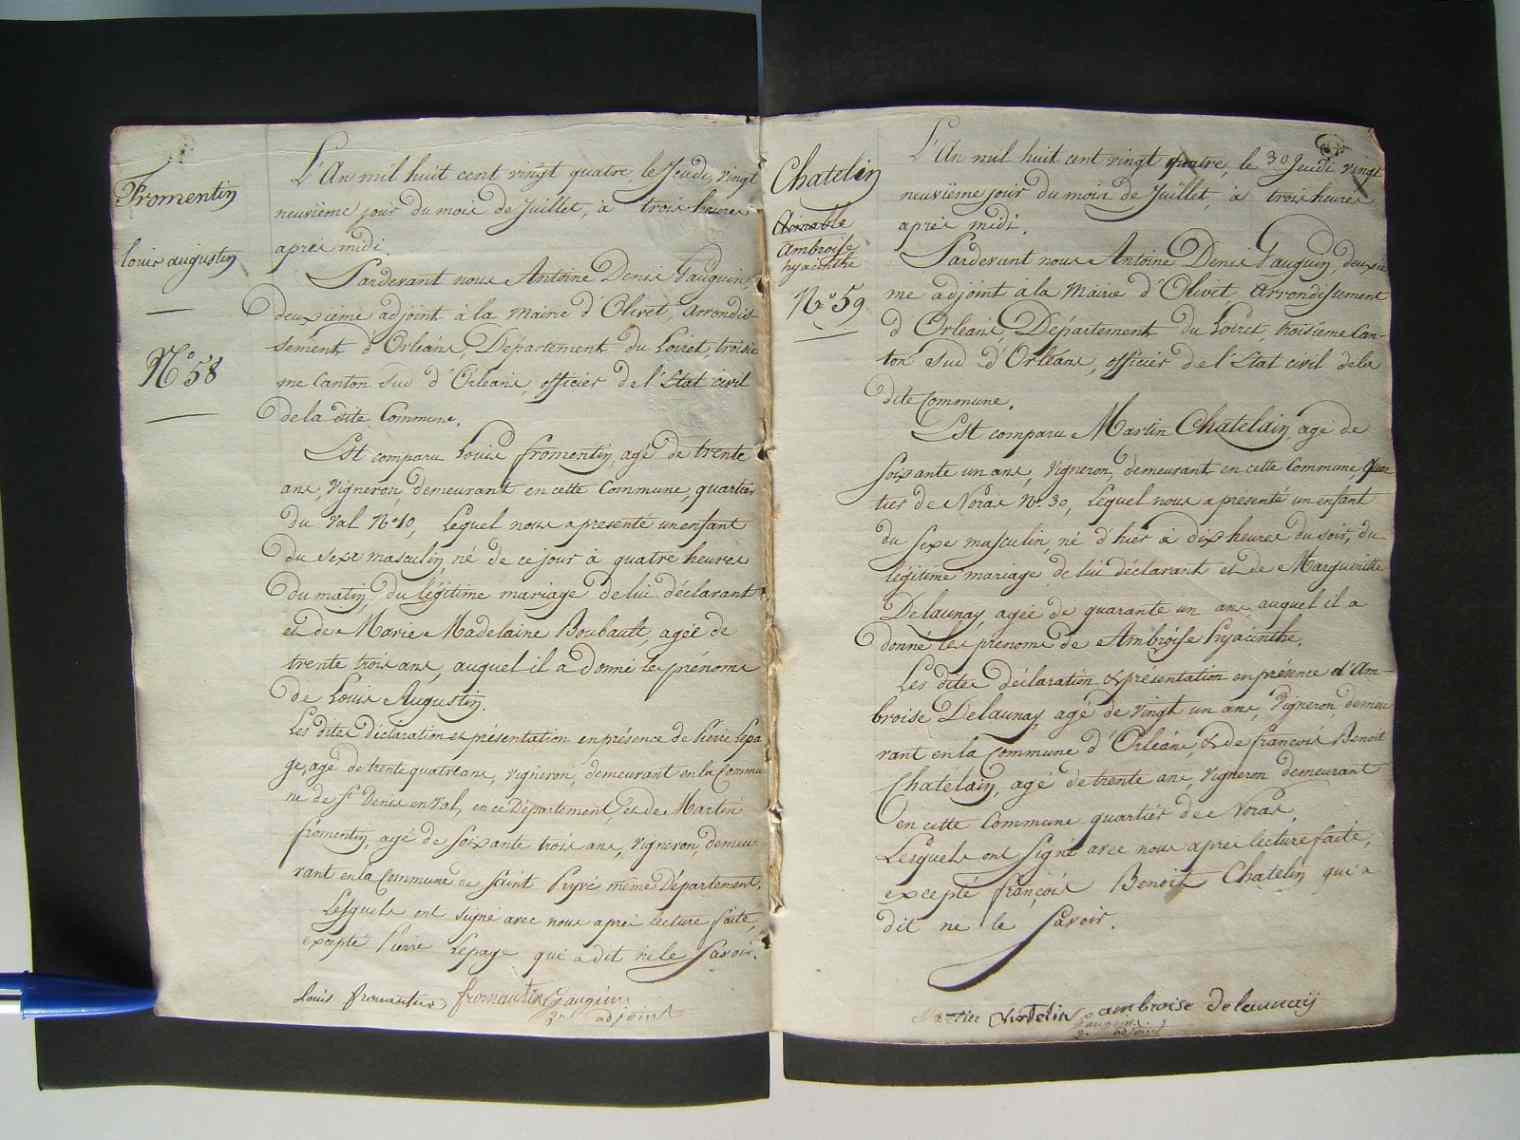 Fromentin
louis augustin
N.º 58
L'An mil huit cent vingt quatre le Jeudi, vingt
neuvième jour du mois de Juillet, à trois heures
après midi.
Pardevant nous Antoine Denis Gauguin,
deuxième adjoint à la Mairie d'Olivet, Arrondis-
sement d'Orléans, Département du Loiret, troisiè
me Canton Sud d'Orleans, officier de l'Etat civil
de la dite Commune.
Est comparu Louis fromentin, agé de trente
ans, Vigneron, demeurant en cette Commune, quartier
du Val N.º 10, Lequel nous a presenté un enfant
du Sexe masculin, né de ce jour à quatre heures
du matin, du légitime mariage de lui déclarant
et de Marie Madelaine Boubault, agée de
trente trois ans, auquel il a donné les prénoms
de Louis Augustin.
Les dites déclaration et présentation en présence de Pierre Lepa
ge, agé de trente quatre ans, vigneron, demeurant en la Commu
ne de St Denis en Val, en ce Département, et de Martin
fromentin, agé de Soixante trois ans, Vigneron, demeu
rant en la Commune de Saint Pryvé même Département.
Lesquels ont signé avec nous après lecture faite,
excepté Pierre Lepage qui a dit ne le Savoir.
Louis fromentin fromentin Gauguin
2e adjoint
Chatelin
Aimable
Ambroise
hyacinthe
N.º 59
L'An mil huit cent vingt quatre, le 30 Jeudi vingt
neuvième jour du mois de Juillet, à trois heures
après midi.
Pardevant nous Antoine Denis Gauguin, deuxiè
me adjoint à la Mairie d'Olivet, Arrondissement
d'Orléans, Département du Loiret, troisième Can-
ton Sud d'Orléans, officier de l'Etat civil de la
dite Commune.
Est comparu Martin Chatelain, agé de
soixante un ans, Vigneron, demeurant en cette Commune, Quar
tier de Noras N.º 30, Lequel nous a presenté un enfant
du Sexe masculin, né d'hier à dix heures du soir, du
légitime mariage de lui déclarant et de Marguerite
Delaunay, agée de quarante un ans, auquel il a
donné les prénoms de Ambroise Hyacinthe.
Les dites déclaration et présentation en présence d'Am-
broise Delaunay, agé de vingt un ans, Vigneron, demeu
rant en la Commune d'Orléans, et de françois Benoit
Chatelain, agé de trente ans, Vigneron demeurant
en cette Commune quartier de Noras.
Lesquels ont Signé avec nous après lecture faite,
excepté françois Benoit Chatelin qui a
dit ne le Savoir.
Martin Chatelin ambroise delaunaÿ
Gauguin
2e adjoint